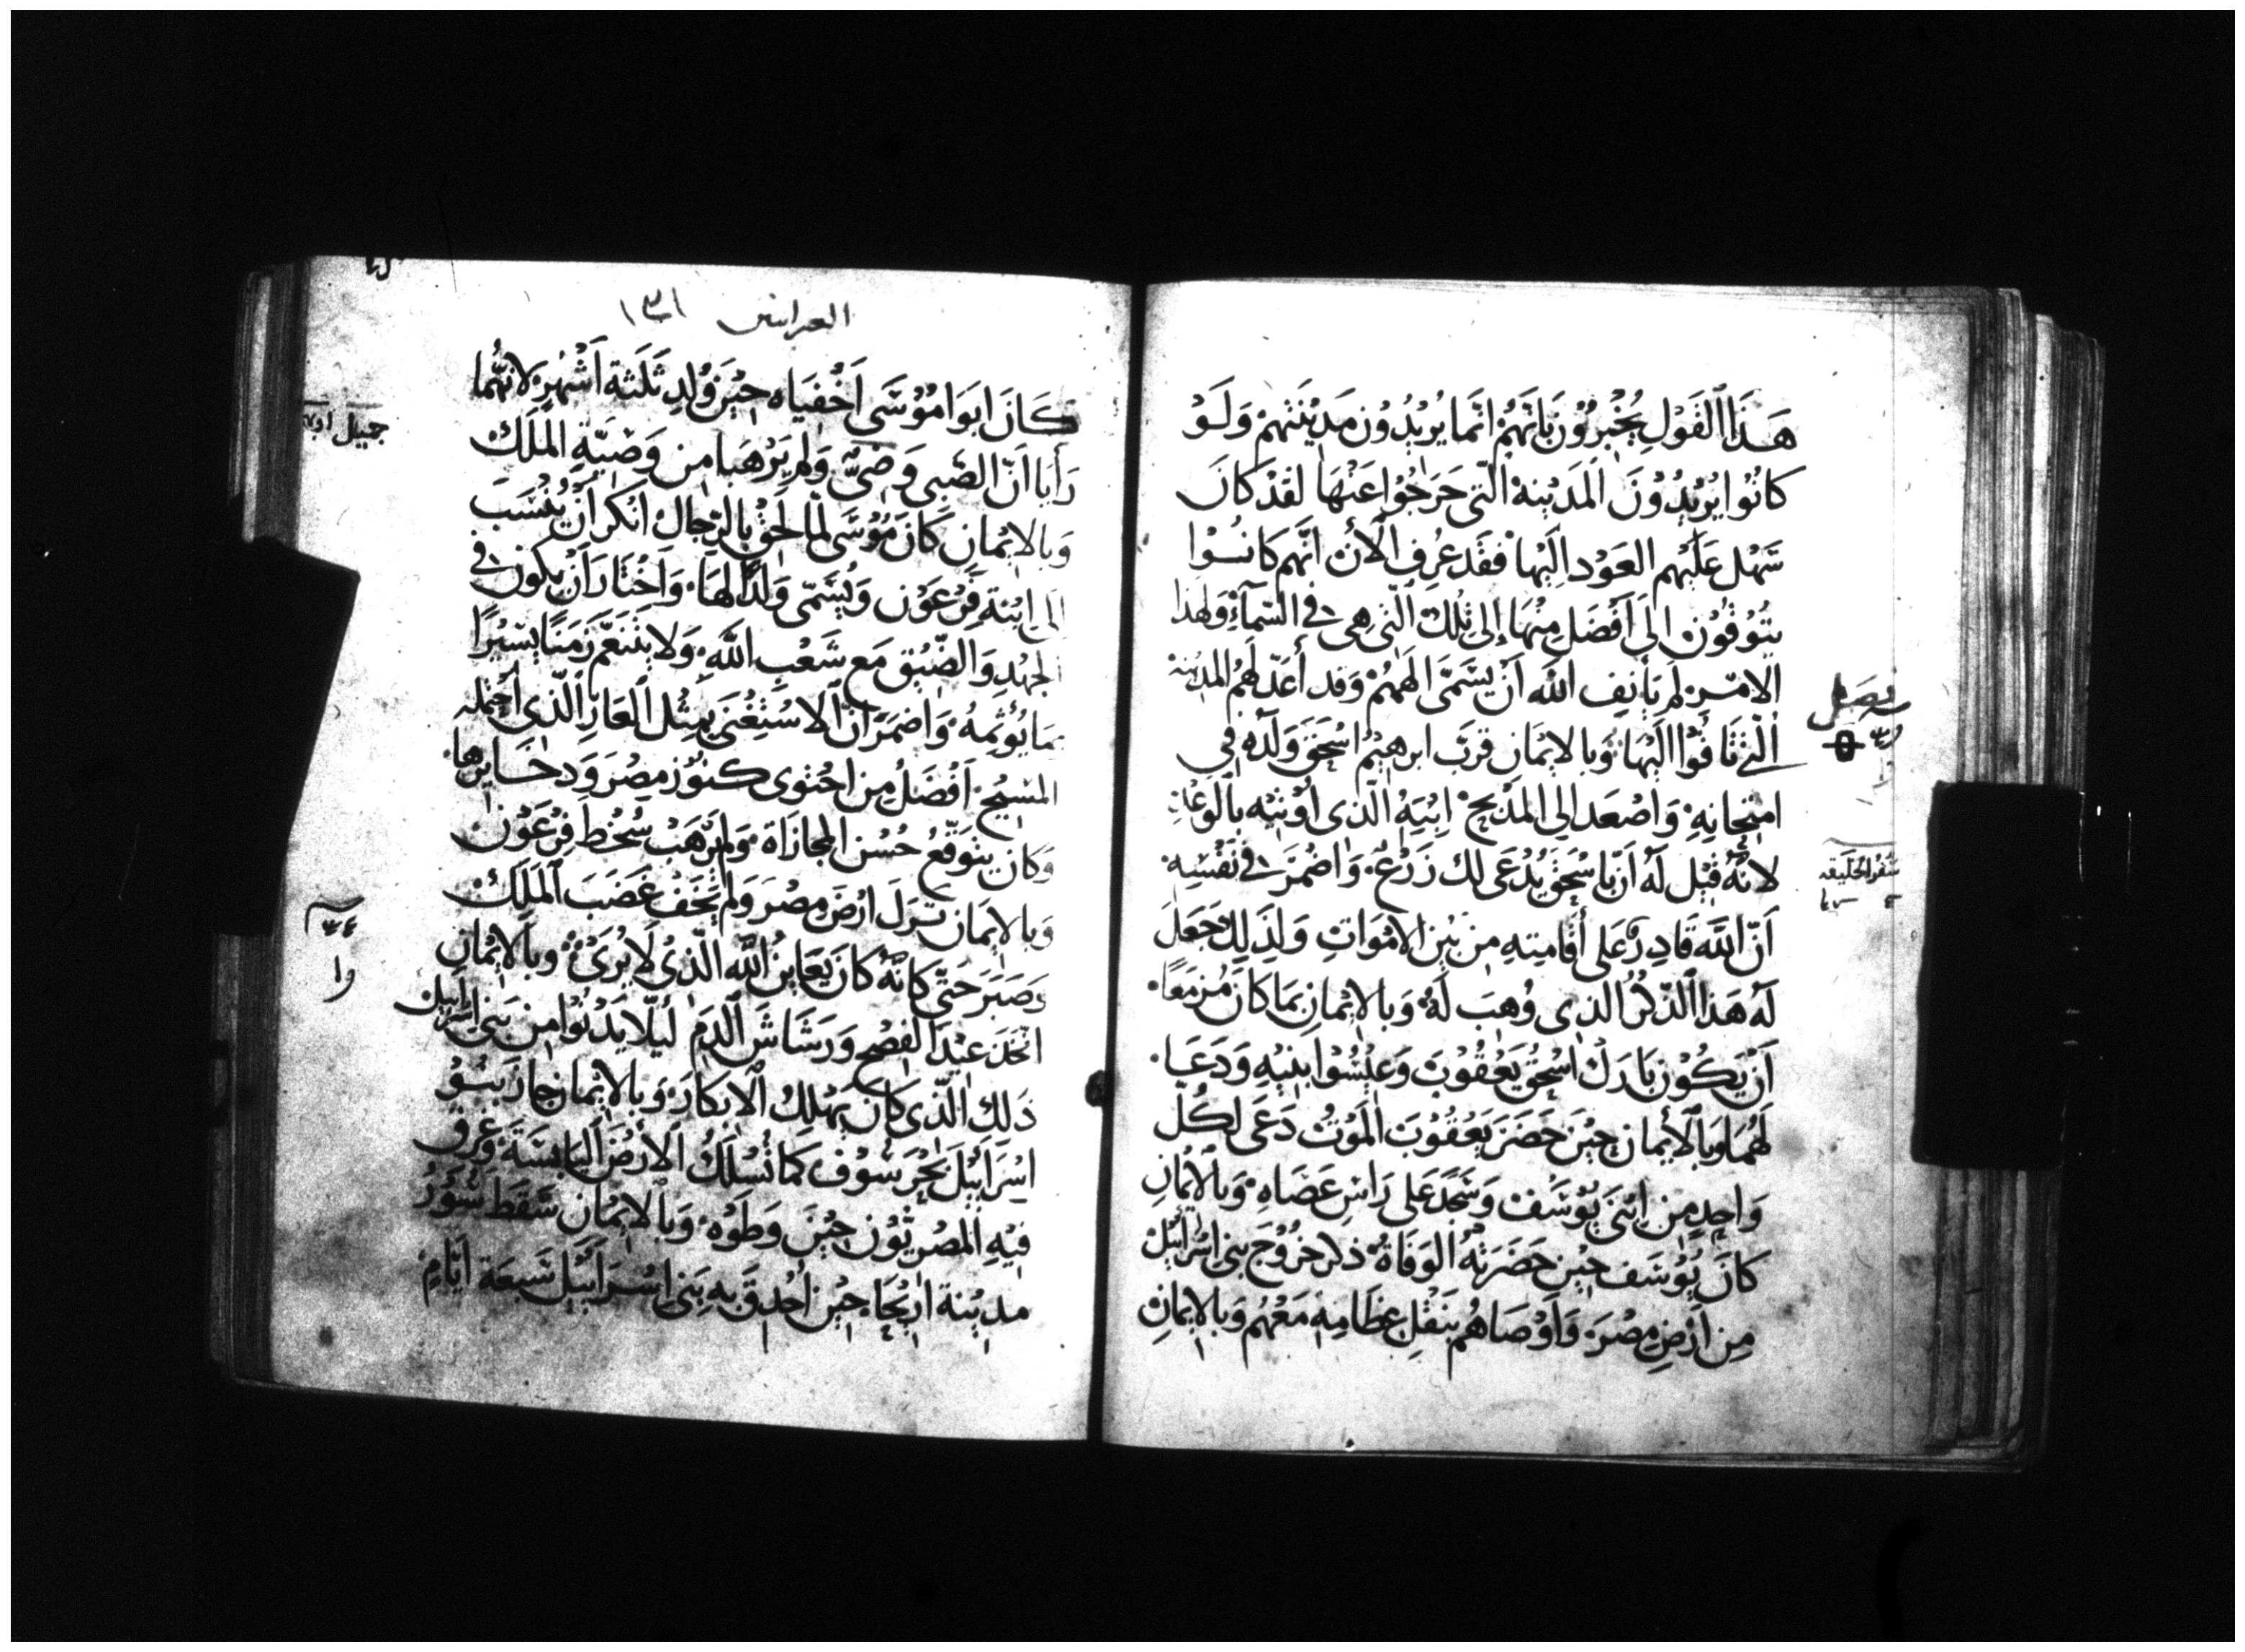 هَذَا ٱلقَوْلِ يُخْبِرُوْنَ بَانَّهُمْ انَّمَا يُرِيْدُوْن مَدِيْنَتَهمْ وَلَوْ
كَانُوا يُرِيْدُوْنَ المَدِيْنة الَّتي خَرَجُوا عَنْهَا لقَدْ كَانَ
سَهْل عَلَيْهم العَوْد الَيْها فقَد عُرِف الْأن انَّهم كَانُوا
يتُوْقُوْن الىَ أَفْضَل مِنْهَا إلى تِلْك الَّتي هي في السّمآء وَلهذَا
الامْر لم يَأنِف الله أنْ يسَمَّى الهَهُمْ وَقد أعَدّ لَهُم المدِيْنة
الَّتي تَاقُوْا الَيْهَا وَبالايْمَان قرَّب ابرهِيْم اسْحَقَ وَلَدَهُ في
امتِحانِهِ وَاصْعَد الي المَذْبح ابْنَهُ الّذي أوْتيه بالْوَعْد
لانَّهُ قيْل لَهُ أنّ باسْحَق يُدْعَى لك زَرْع وَاضْمَرَ في نَفْسِهِ
أنّ اللَّه قَادِر عَلى أقَامتِهِ مِن بَيْن الامْوَاتِ وَلذَلِك جَعَلَ
لَهُ هَذا الذِّكْرُ الذي وُهِبَ لَهُ وَبالايْمَانِ بمَا كَانَ مُزمَعًا
أنْ يَكُوْن بَارَك اسْحَقُ يَعْقُوْبَ وَعِيْسُوْا ابنَيْهِ وَدَعَا
لَهُمَا وَبالأيمان حِيْنَ حَضَرَ يَعْقُوْبَ المَوْتُ دَعَى لكُلّ
وَاحِدٍ مِن ابْنَي يُوْسَف وَسَجَدَ عَلى رَاسِ عَصَاهِ وَبالْايْمَانِ
كانَ يُوْسَف حِيْن حَضَرَتْهُ الوَفَاةُ ذكر خرُوْج بني اسْرَائِيْل
مِن أرْضِ مِصْرَ وَأوْصَاهُم بنَقْل عظَامِهِ مَعَهُم وَبالايمَانِ
فصل
سفر الخليقه
العبرانيين ١٣١
كَانَ ابَوا مُوْسَى أخْفَيَاه حِيْنَ وُلِدِ ثَلَثة أشْهُرٍ لانَّهُما
رَأيَا أنّ الصَّبي وَضيّ وَلم يَرْهَبا مِن وَصِيّة الملِك
وَبالايْمَانِ كَانَ مُوْسَى لمَّا لَحِق بالرّجال أنكر أنْ يُنْسَبَ
الى ابْنة فِرْعَوْن وَيُسَمّى وَلَدًا لهَا وَاخْتَارَ أنْ يكُون في
الجهْدِ وَالضّيْق مَع شَعْب اللَّه وَلا يَتَنَعَّم زَمنًا يسِيْرًا
بمَا يُؤثِمهُ وَاضمَرَ أنّ الاسْتِغْنى بمِثْل العَارِ الَّذي احتمله
المسِيْح أفْضَلُ مِن احْتَوى كنُوْز مِصْرَ وَدخَايرهَا
وَكان يتَوَقّعُ حُسْن المجازَاة وَلم يَرْهَبْ سُخْط فِرْعَوْن
وَبالايمَان تَرَكَ ارْضَ مِصْرَ وَلم يَخَفْ غَضَبَ المَلِك
وَصَبَرَ حَتّى كَانَّهُ كانَ يُعَاين اللَّه الَّذيْ لَا يُرَىْ وبالايْمَانِ
اتّخَذ عِيْدَ الفِصْح وَرَشَاشَ الدَم لَيلّا يَدْنُوا مِن بَني اسْرَايل
ذَلِك الَّذي كَان يُهْلِك الابْكَارَ وَبالايمَان جَازَ بَنُو
اسْرَائِيْل بَحْرَ سُوْف كَمَا تُسْلَكُ الأرْضَ اليَابسَة وَغرق
فيْهِ المصْرِيُّوْن حِيْن وَطَوْه وَبالْايمَان سَقَط سُوْرُ
مدِيْنة ارِيْحَاء حِيْن أحْدَق بهِ بَني اسْرَائِيْل سَبعَة ايّامٍ
جبيل اول